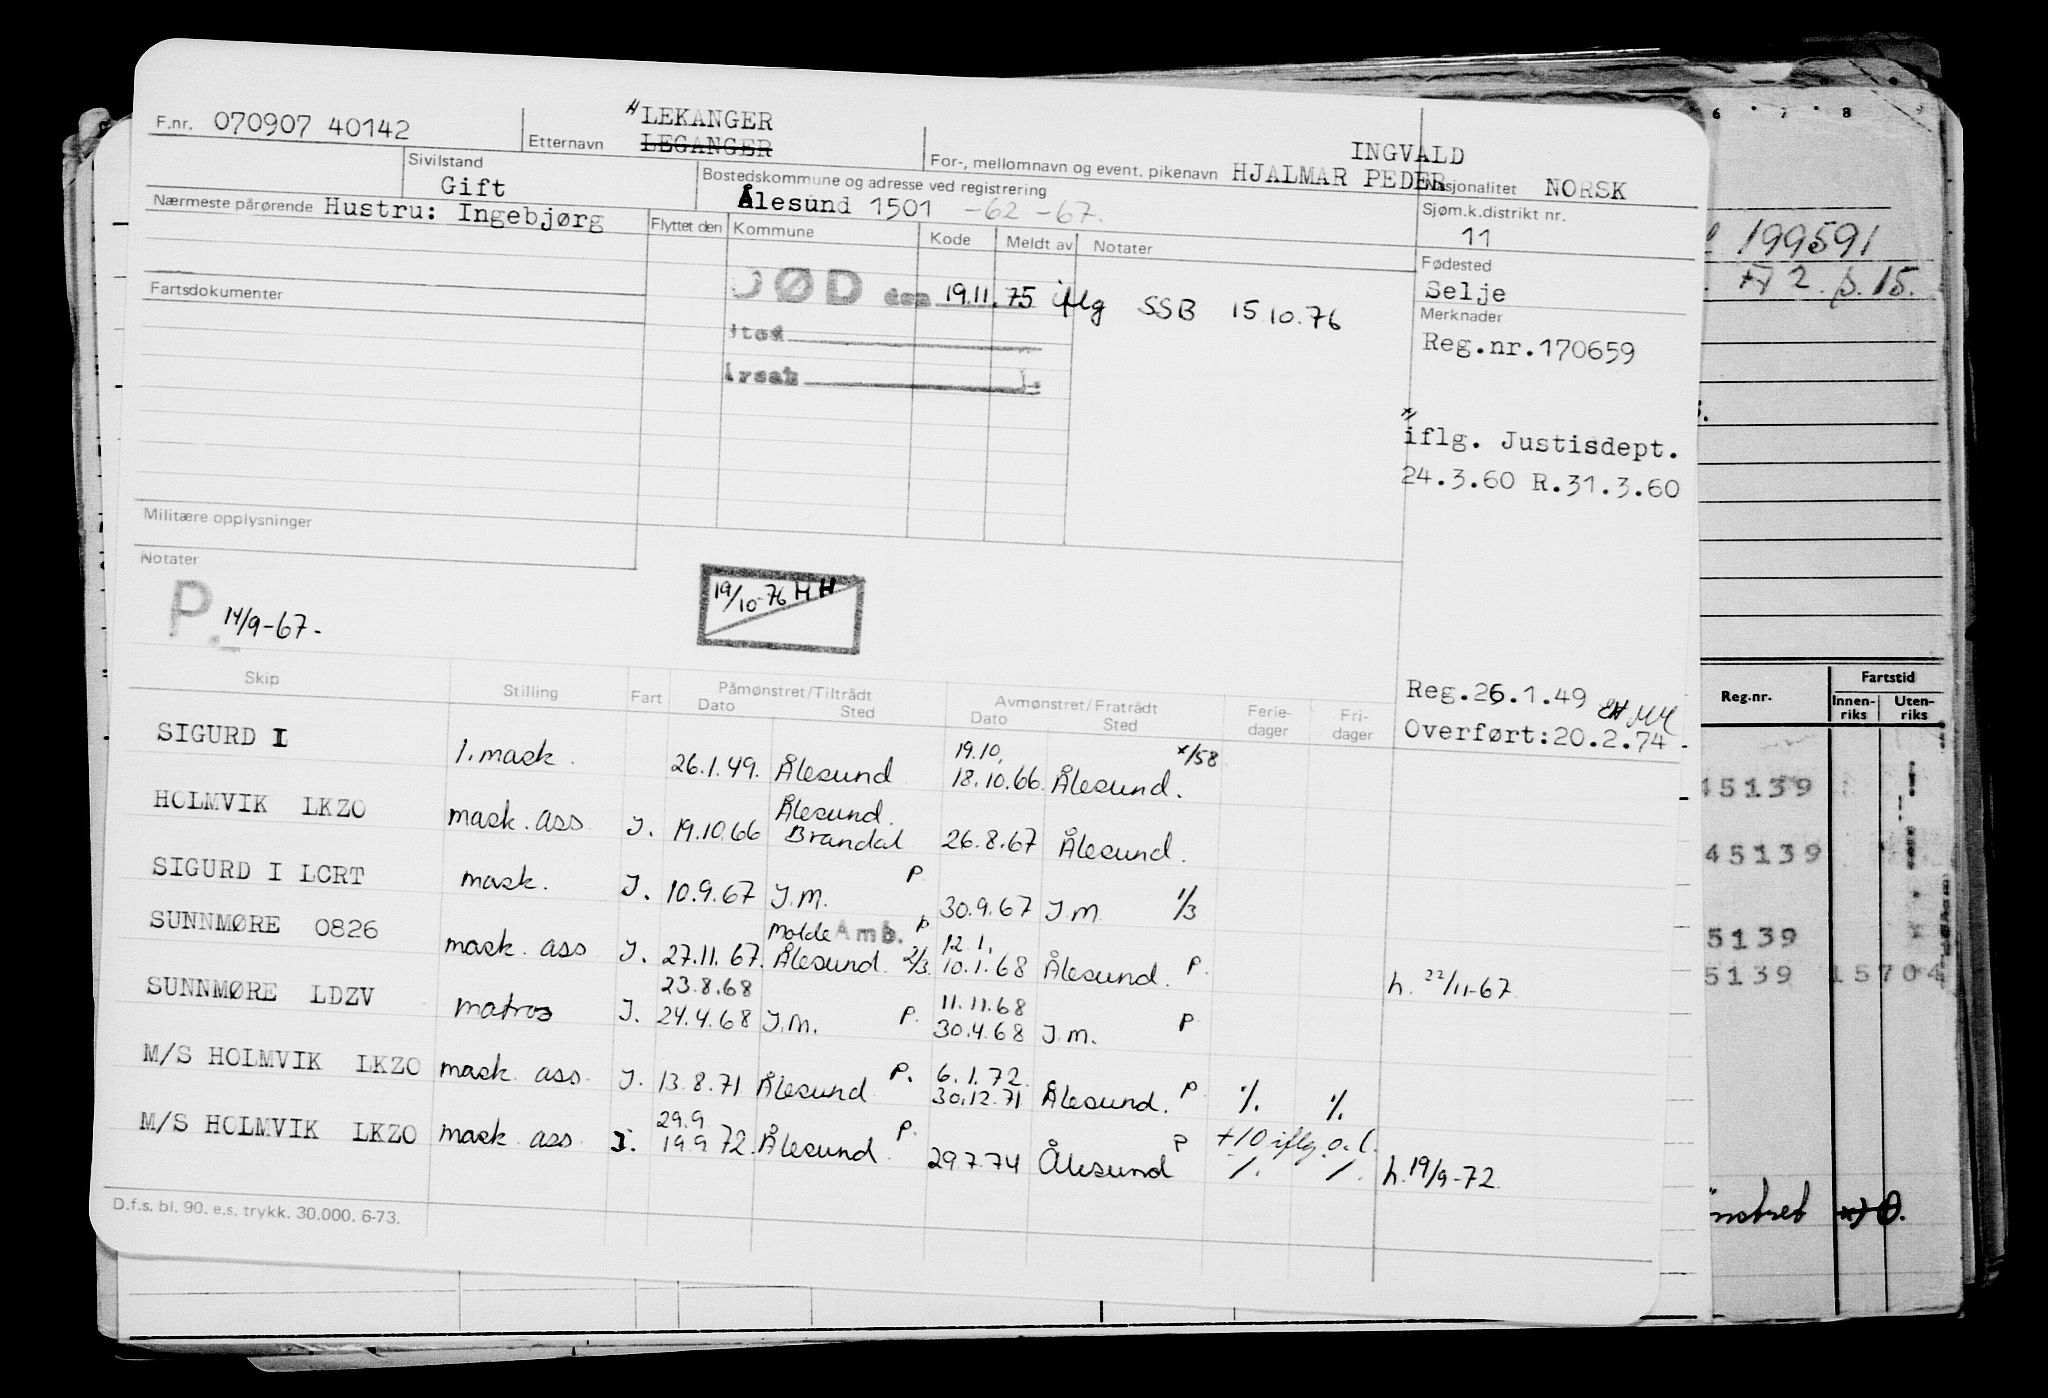 F.nr. 070907 40142
Etternavn "LEKANGER
LEGANGER
For-, mellomnavn og event. pikenavn HJALMAR PEDER INGVALD
Nasjonalitet NORSK
Sivilstand
Gift
Bostedskommune og adresse ved registrering
Ålesund 1501 -62-67.
Sjøm.k.distrikt nr.
11
Nærmeste pårørende Hustru: Ingebjørg
Flyttet den Kommune Kode Meldt av Notater
Fødested
Selje
DØD den 19.11.75 iflg SSB 15 10.76
Fartsdokumenter
sted
årsak
Merknader
Reg.nr.170659
iflg. Justisdept.
24.3.60 R.31.3.60
Militære opplysninger
Notater
P. 14/9-67.-
19/10-76 HH
Reg.26.1.49
Overført:20.2.74-
Skip Stilling Fart Påmønstret/Tiltrådt Avmønstret/Fratrådt Ferie-dager Fri-dager
Dato Sted Dato Sted
SIGURD I 1.mask. 26.1.49. Ålesund 19.10, 18.10.66. Ålesund. x/58
HOLMVIK LKZO mask. ass. J. 19.10.66 Ålesund. Brandal 26.8.67 Ålesund.
SIGURD I LCRT mask. J. 10.9.67 J.M. P 30.9.67 J.M. 1/3
SUNNMØRE 0826 mask. ass J. 27.11.67. Molde Amb. P Ålesund. 2/3. 12.1, 10.1.68 Ålesund. P. h. 22/11-67
SUNNMØRE LDZV matros J. 23.8.68 24.4.68 J.M. P. 11.11.68 30.4.68 J.M. P
M/S HOLMVIK LKZO mask. ass. J. 13.8.71 Ålesund P. 6.1.72. 30.12.71 Ålesund. P % %
M/S HOLMVIK LKZO mask. ass. J. 29.9 19.9.72. Ålesund. P. 29.7.74 Ålesund P +10 iflg. o.l. % % h. 19/9-72.
D.f.s. bl. 90. e.s. trykk. 30.000. 6-73.
6 7 8
199591
2. p.15.
Reg.nr. Fartstid
Innen-riks Uten-riks
45139
45139
5139
5139 15704